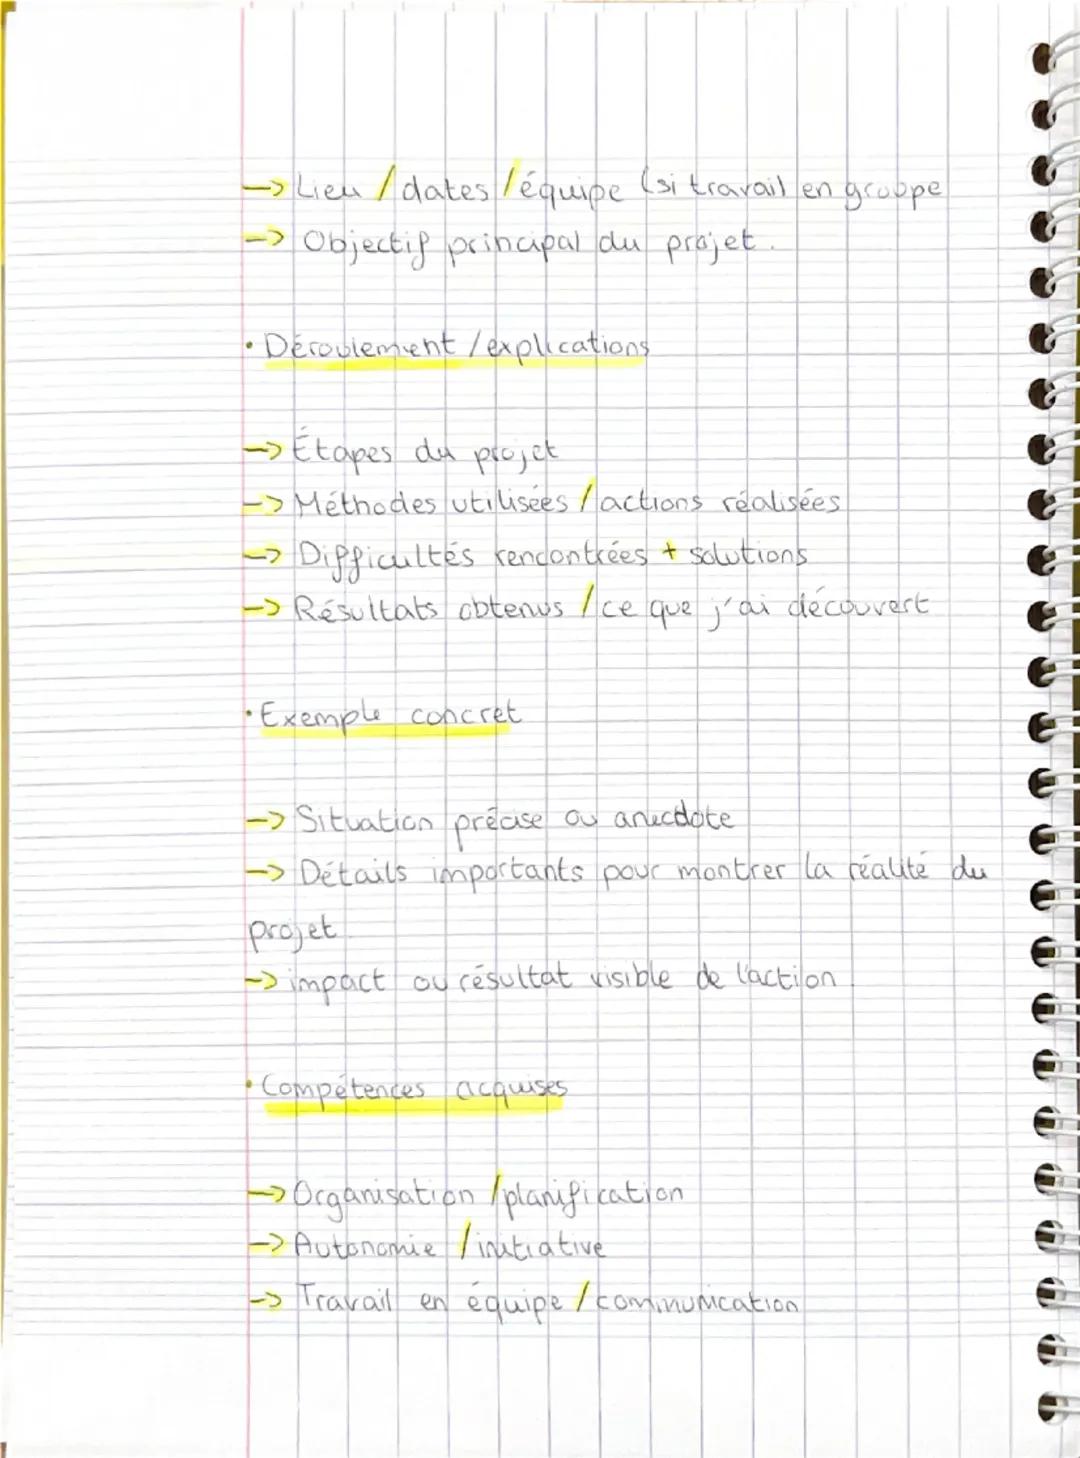 -> Lieu / dates / équipe (si travail en groupe
-> Objectif principal du projet.
• Déroulement / explications
-> Étapes du projet
-> Méthodes utilisées / actions réalisées
-> Difficultés rencontrées + solutions
-> Résultats obtenus / ce que j'ai découvert
• Exemple concret
-> Situation précise ou anecdote
-> Détails importants pour montrer la réalité du
projet.
-> impact ou résultat visible de l'action.
• Compétences acquises
-> Organisation / planification
-> Autonomie / initiative
-> Travail en équipe / communication